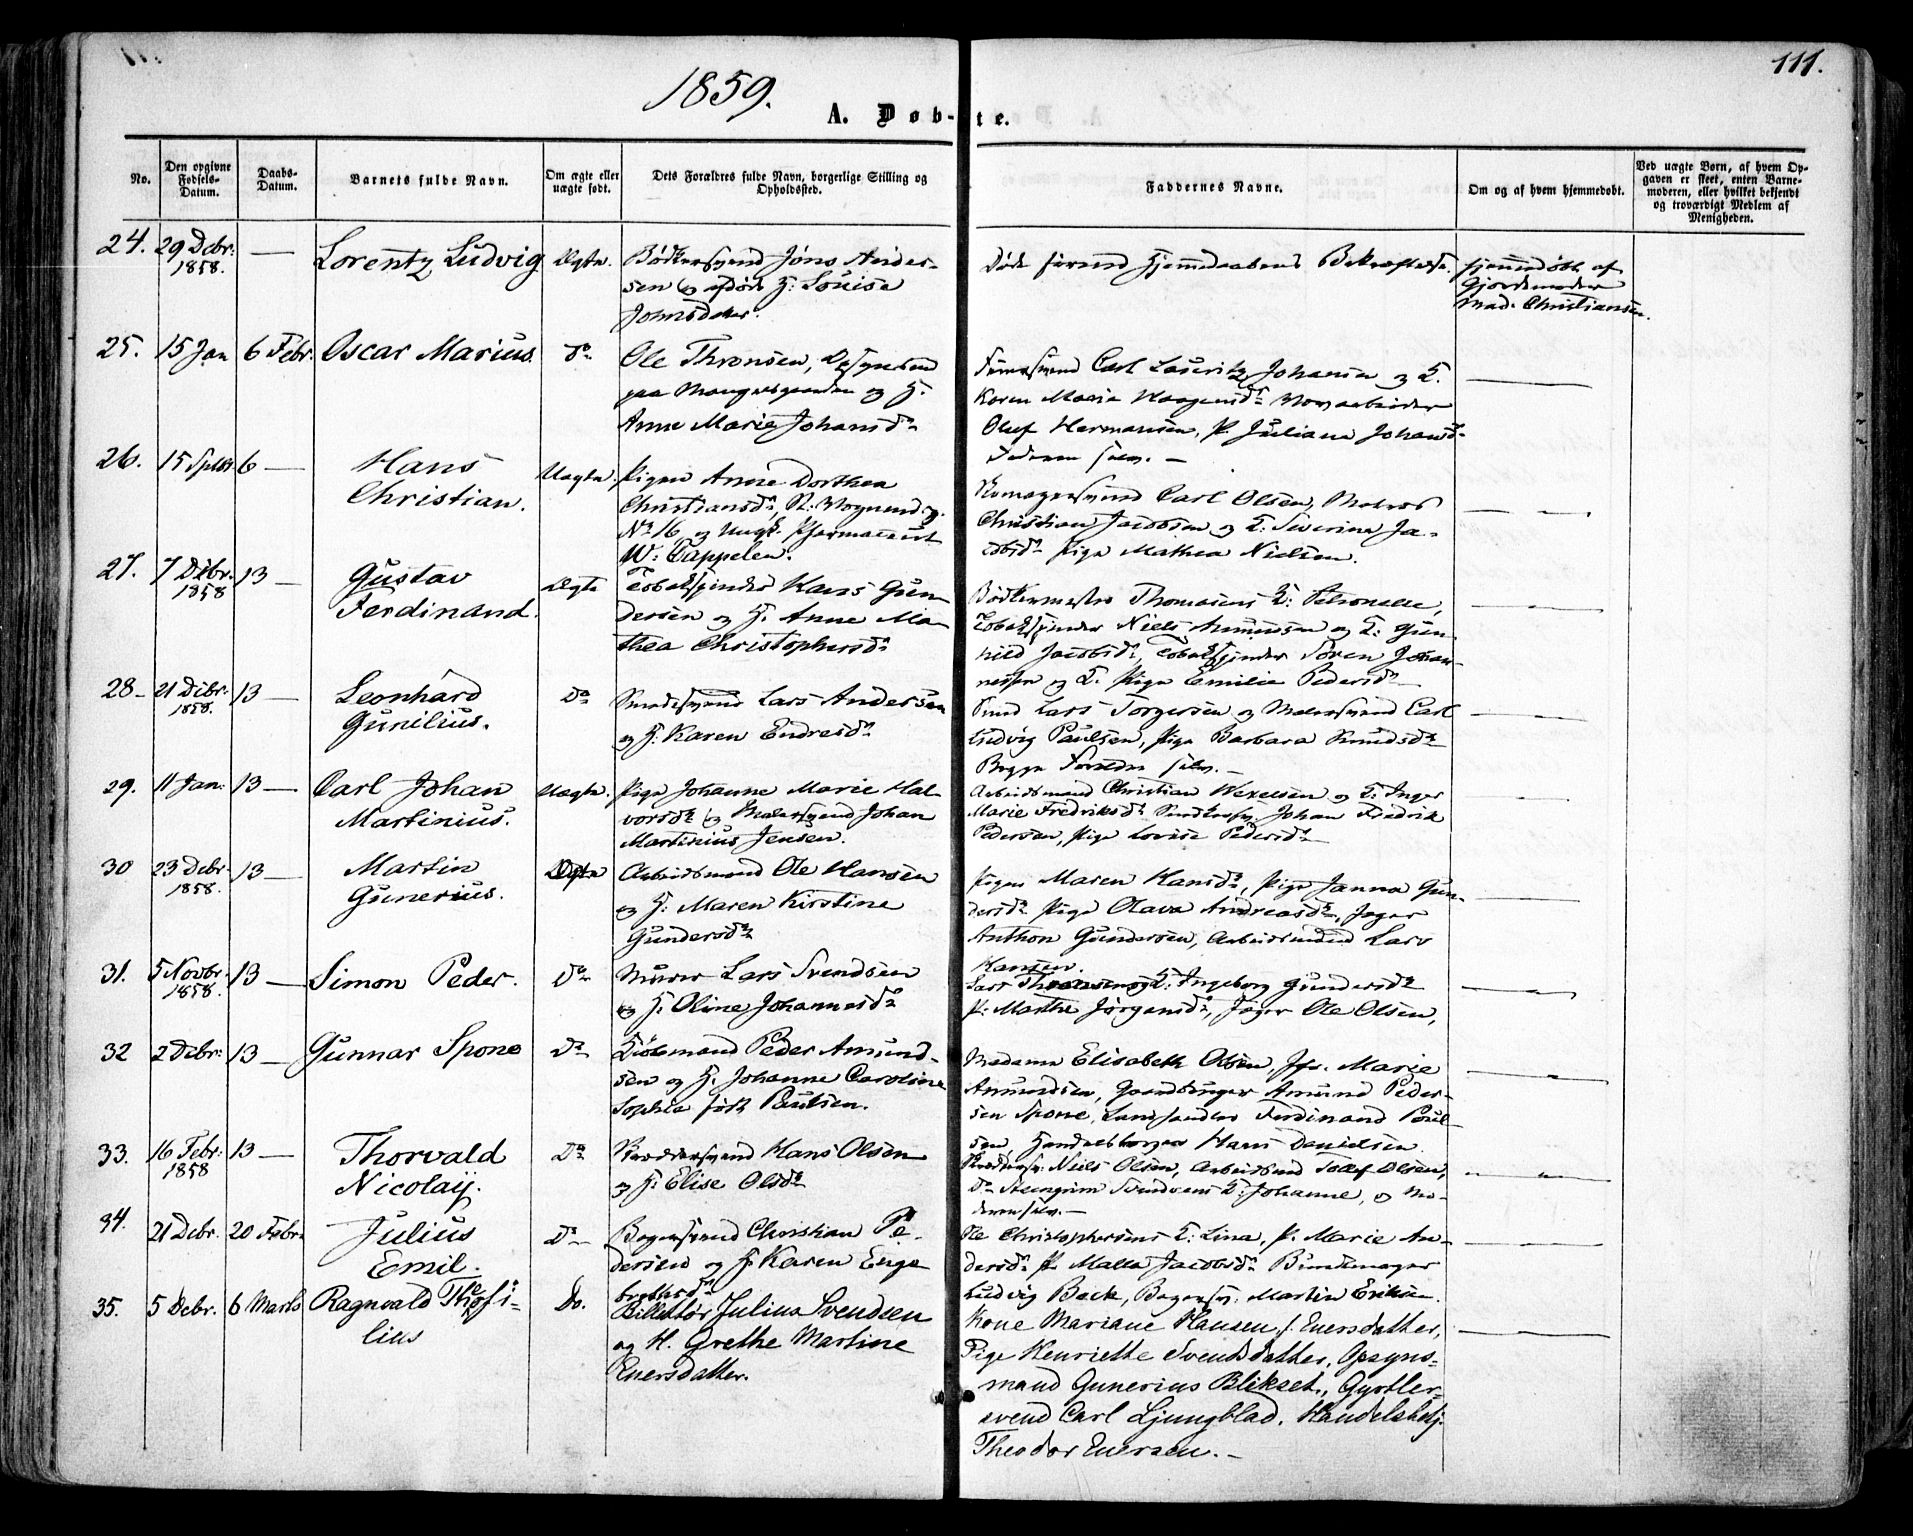 1859.
111.
A. Døb-te.
No.
Den opgivne Fødsels-Datum.
Daabs-Datum.
Barnets fulde Navn.
Om ægte eller uægte født.
Dets Forældres fulde Navn, borgerlige Stilling og Opholdssted.
Faddernes Navne.
Om og af hvem hjemmedøbt.
Ved uægte Børn, af hvem Opgaven er skeet, enten Barnemoderen, eller hvilket bekjendt og troværdigt Medlem af Menigheden.
24. 29 Debr. 1858. — Lorentz Ludvig Ægte.
Bødkersvend Jöns Ander-
sen og afdøde H: Louise
Johnsdatter.
Døde førend Hjemmedaabens Bekræftelse.
Hjemmedøbt af
Gjordemoder
Mad. Christiansen.
25. 15 Jan 6 Febr. Oscar Marius Do
Ole Thronsen, Opsynsmd
paa Mangelsgaarden og H.
Anne Marie Johansd.
Carl Lauritz Johansen og H.
Karen Marie Haagensd.
Oluf Hermansen, P. Juliane Johansd.
Faderen selv. —
26. 15 Septbr 6 — Hans
Christian. Uægte.
Pigen Anne Dorthea
Christiansd., St: Vognmdg.
No 16 og Ungk. Pharmaceut
W. Cappelen.
Carl Olsen, Matros
Christian Jacobsen og H: Severine Ja-
cobsd. Pige Mathea Nielsen.
27. 7 Debr. 1858 13 — Gustav
Ferdinand. Ægte
Tobaksspinder Hans Gun-
dersen og H. Anne Ma-
thea Christophersd.
Bødkermester Thomasens H: Petronelle,
Tobaksspinder Niels Amundsen og H: Gun-
hild Jacobsd., Tobaksspinder Søren Johan-
nessen og H. Pige Emilie Pedersd.
28 — 21 Debr. 1858. 13 — Leonhard
Gunilius. Do
Smedesvend Lars Andersen
og H. Karen Endresd.
Smed Lars Torgersen og Malersvend Carl
Ludvig Paulsen, Pige Barbara Knudsd.
Begge Forældre selv. —
29. 11 Jan: 13 — Carl Johan
Martinius. Uægte.
Pige Johanne Marie Hal-
vorsd. og Malersvend Johan
Martinius Jensen.
Arbeidsmand Christian Wexelsen og H. Inger
Marie Fredriksd. Johan Fredrik
Pedersen, Pige Lovise Pedersd.
30 23 Debr. 1858. 13 — Martin
Gunerius. Ægte
Arbeidsmand Ole Hansen
og H. Maren Kirstine
Gundersd.
Pigen Maren Hansd., Pige Janna Gun-
dersd. Pige Olava Andreasd., Jæger
Anthon Gundersen, Arbeidsmand Lars
Hansen.
31. 5 Novbr. 1858. 13 — Simon Peder. Do
Murer Lars Svendsen
og H. Oline Johannesd.
Lars Thronsen og H. Ingeborg Gundersd.
P. Marthe Jörgensd., Jæger Ole Olsen,
32 2 Debr: 13 — Gunnar Spone Do
Kjøbmand Peder Amund-
sen og H. Johanne Caroline
Sophie født Paulsen.
Madame Elisabeth Olsen, Jfr. Marie
Amundsen, Gaardbruger Amund Peder-
sen Spone, Landhandler Ferdinand Paul-
sen, Handelsborger Hans Danielsen
33. 16 Febr: 1858 13 — Thorvald
Nicolaij. Do
Hans Olsen
og H. Elise Olsd.
Niels Olsen, Arbeidsmd Tollef Olsen,
Do Steengrim Svendsens H. Johanne, og Mo-
deren selv. —
34. 21 Debr. 20 Febr. Julius
Emil. Do
Bagersvend Christian Pe-
dersen og H. Karen Enge-
bretsd.
Ole Christophersens H: Lina, P. Marie An-
dersd. P. Malla Jacobsd. Buntmager
Ludvig Beck, Bagersv. Martin Eriksen.
35. 5 Debr. 6 Marts Ragnvald Theofi-
lius Do.
Billettör Julius Svendsen
og H. Grethe Martine
Eversdatter.
Kone Mariane Hansen f. Eversdatter,
Pige Henriette Svendsdatter, Opsyns-
mand Gunerius Blikset, Gyrtler-
svend Carl Ljungblad. Handelsbetj.
Theodor Eversen. —